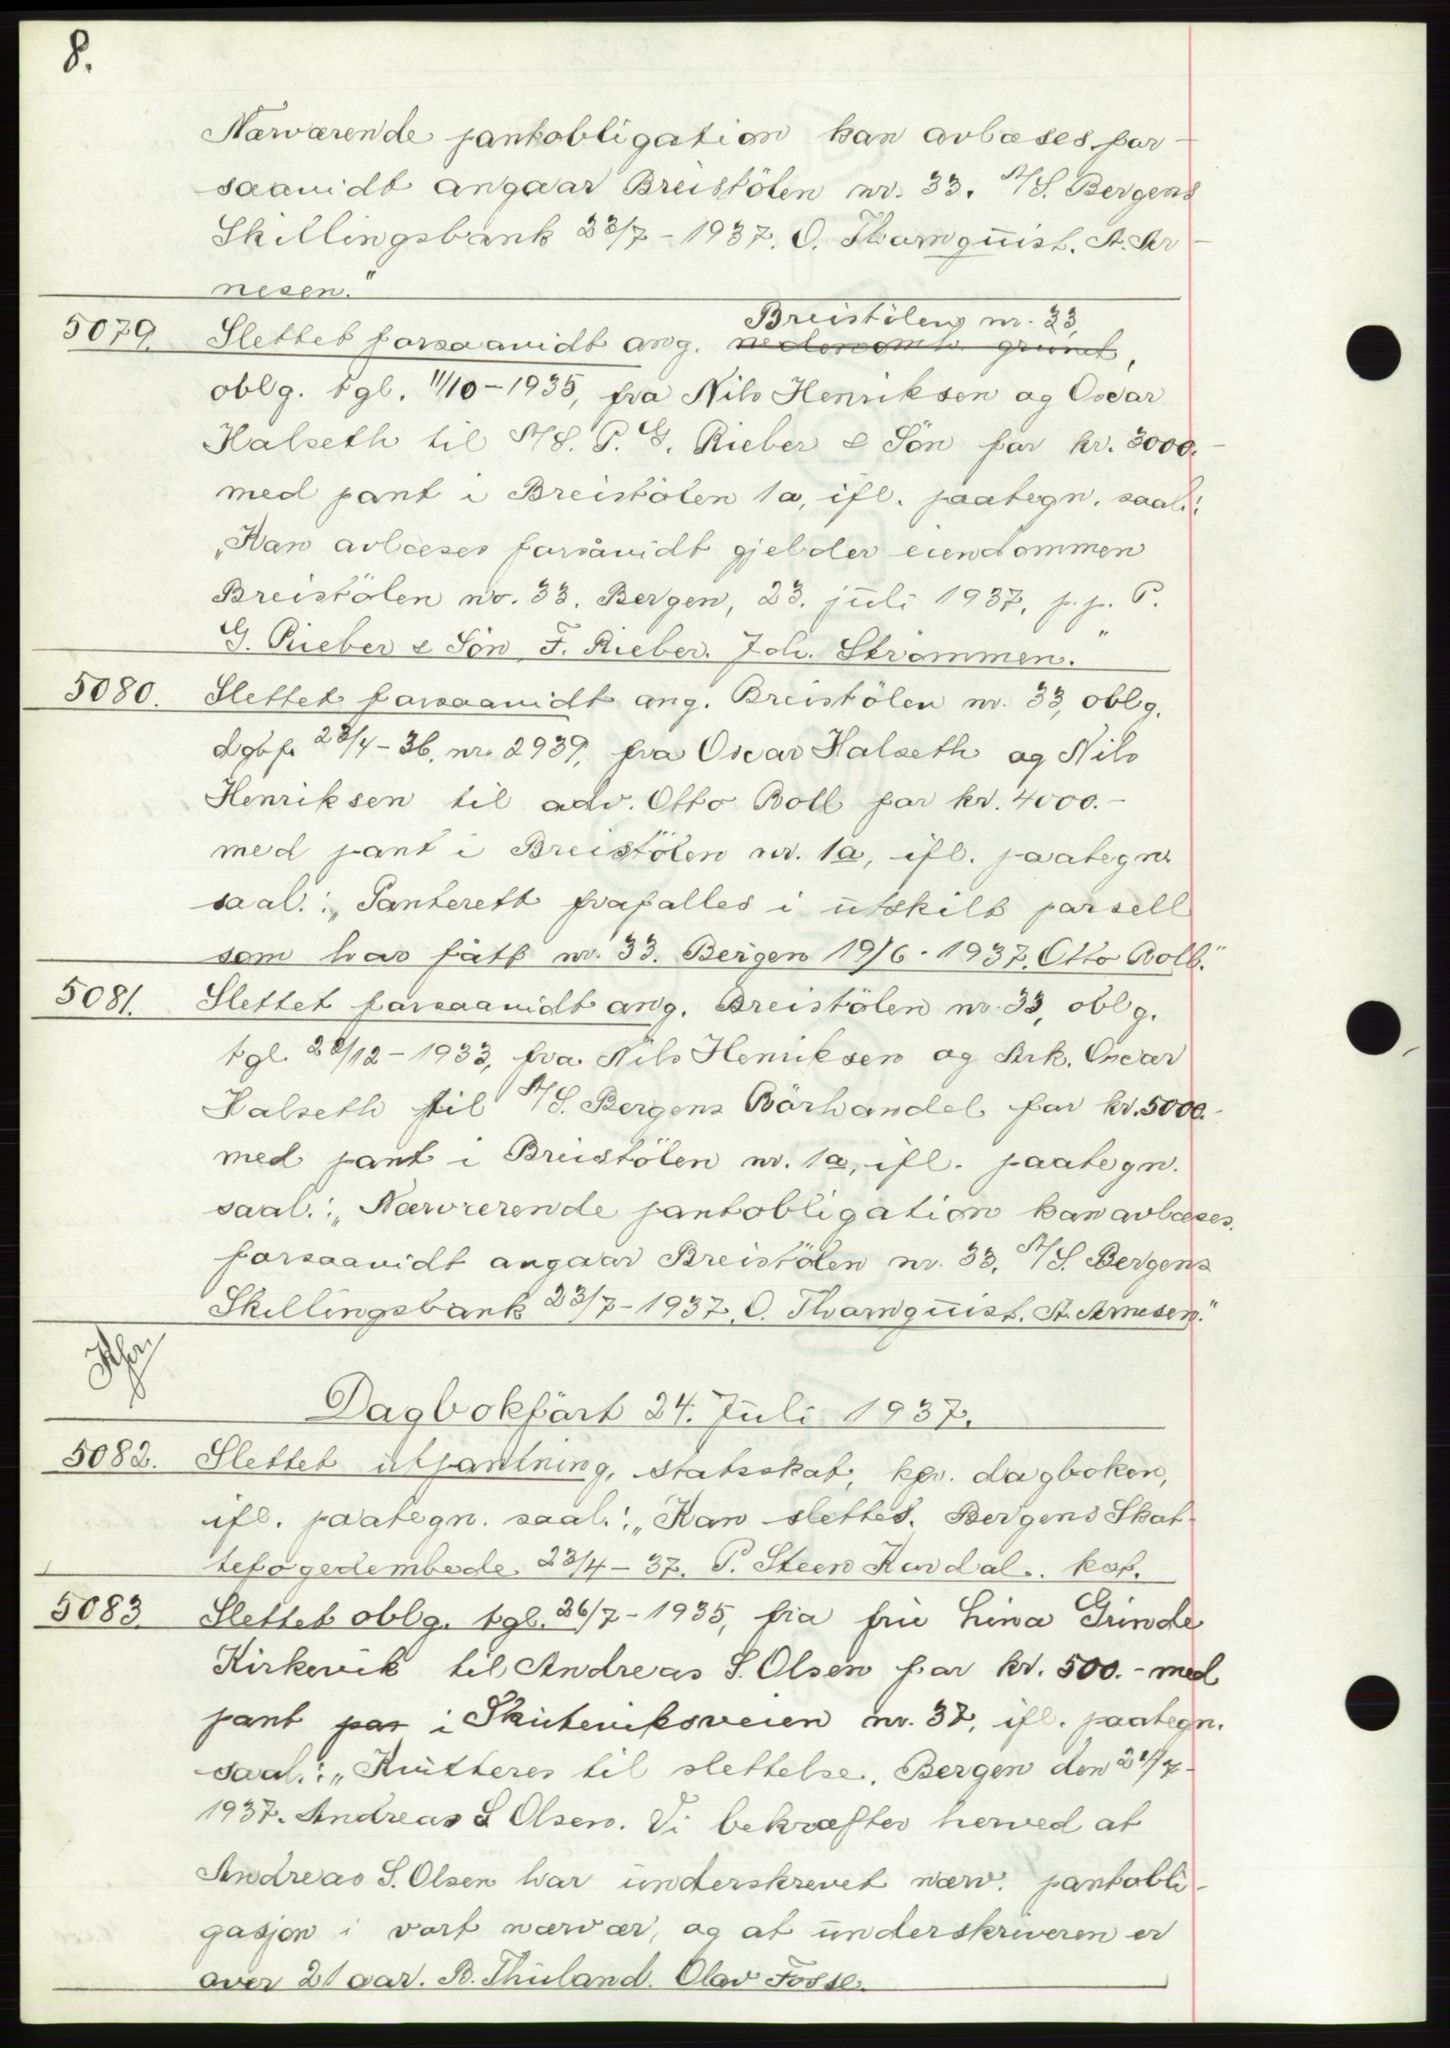 8.
Nærværende pantobligation kan avlæses for-
saavidt angaar Breistölen nr. 33. A/S. Bergens
Skillingsbank 23/7-1937. O. Thornquist. A. Ar-
nesen."
Breistölen nr. 33,
5079. Slettet forsaavidt ang. nedennevnte grund,
oblg. tgl. 11/10-1935, fra Nils Henriksen og Oscar
Halseth til A/S. P. G. Rieber & Sön for kr. 3000.-
med pant i Breistölen 1a, ifl. paategn. saal.:
"Kan avlæses forsåvidt gjelder eiendommen
Breistölen nr. 33. Bergen, 23. juli 1937, p.p. P.
G. Rieber & Sön F. Rieber. Joh. Strömmen."
5080. Slettet forsaavidt ang. Breistölen nr. 33, oblg.
dgbf. 23/4-36, nr. 2939, fra Oscar Halseth og Nils
Henriksen til adv. Otto Boll for kr. 4000.-
med pant i Breistölen nr. 1a, ifl. paategn.
saal.: "Panterett frafalles i utskilt parsell
som har fått nr. 33. Bergen 19/6-1937. Otto Boll."
5081. Slettet forsaavidt ang. Breistölen nr. 33, oblg.
tgl. 28/12-1933, fra Nils Henriksen og Ark. Oscar
Halseth til A/S. Bergens Rörhandel for kr. 5000.-
med pant i Breistölen nr. 1a, ifl. paategn.
saal.: "Nærværende pantobligation kan avlæses
forsaavidt angaar Breistölen nr. 33, A/S. Bergens
Skillingsbank 23/7-1937. O. Thornquist. A. Arnesen."
Dagbokfört 24. Juli 1937.
5082. Slettet utpantning, statsskat, kfr. dagboken,
ifl. paategn. saal.: "Kan slettes. Bergens Skat-
tefogedembede. 23/4-37. P. Steen Kardal. kst.
5083. Slettet oblg. tgl. 26/7-1935, fra fru Lina Grinde
Kirkevik til Andreas S. Olsen for kr. 500.- med
pant paa i Skuteviksveien nr. 37, ifl. paategn.
saal.: "Kvitteres til slettelse. Bergen den 21/7-
1937. Andreas S Olsen. Vi bekræfter herved at
Andreas S. Olsen har underskrevet nærv. pantobli-
gasjon i vort nærvær, og at underskriveren er
over 21 aar. B. Thuland. Olav Fosse.